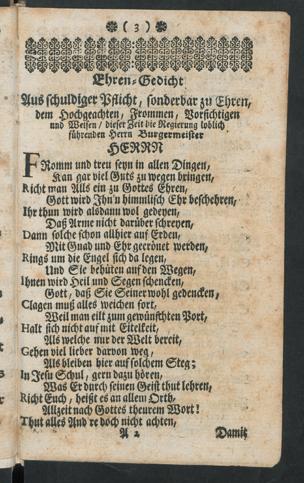 ( 3 )
Ehren-Gedicht
Aus schuldiger Pflicht, sonderbar zu Ehren,
dem Hochgeachten, Frommen, Vorsichtigen
und Weisen, dieser Zeit die Regierung loblich
führenden Herrn Burgermeister
HERRN
FRomm und treu seyn in allen Dingen,
Kan gar viel Guts zu wegen bringen,
Richt man Alls ein zu Gottes Ehren,
Gott wird Ihn'n himmlisch Ehr beschehren,
Ihr thun wird alsdann wol gedeyen,
Daß Arme nicht darüber schreyen,
Dann solche schon allhier auf Erden,
Mit Gnad und Ehr gecrönet werden,
Rings um die Engel sich da legen,
Und Sie behüten auf den Wegen,
Ihnen wird Heil und Segen schencken,
Gott, daß Sie Seiner wohl gedencken,
Clagen muß alles weichen fort,
Weil man eilt zum gewünschten Port,
Halt sich nicht auf mit Eitelkeit,
Als welche nur der Welt bereit,
Gehen viel lieber darvon weg,
Als bleiben hier auf solchem Steg;
In Jesu Schul, gern dazu hören,
Was Er durch seinen Geist thut lehren,
Richt Euch, heißt es an allem Orth,
Allzeit nach Gottes theurem Wort!
Thut alles And're doch nicht achten,
A 2 Damit